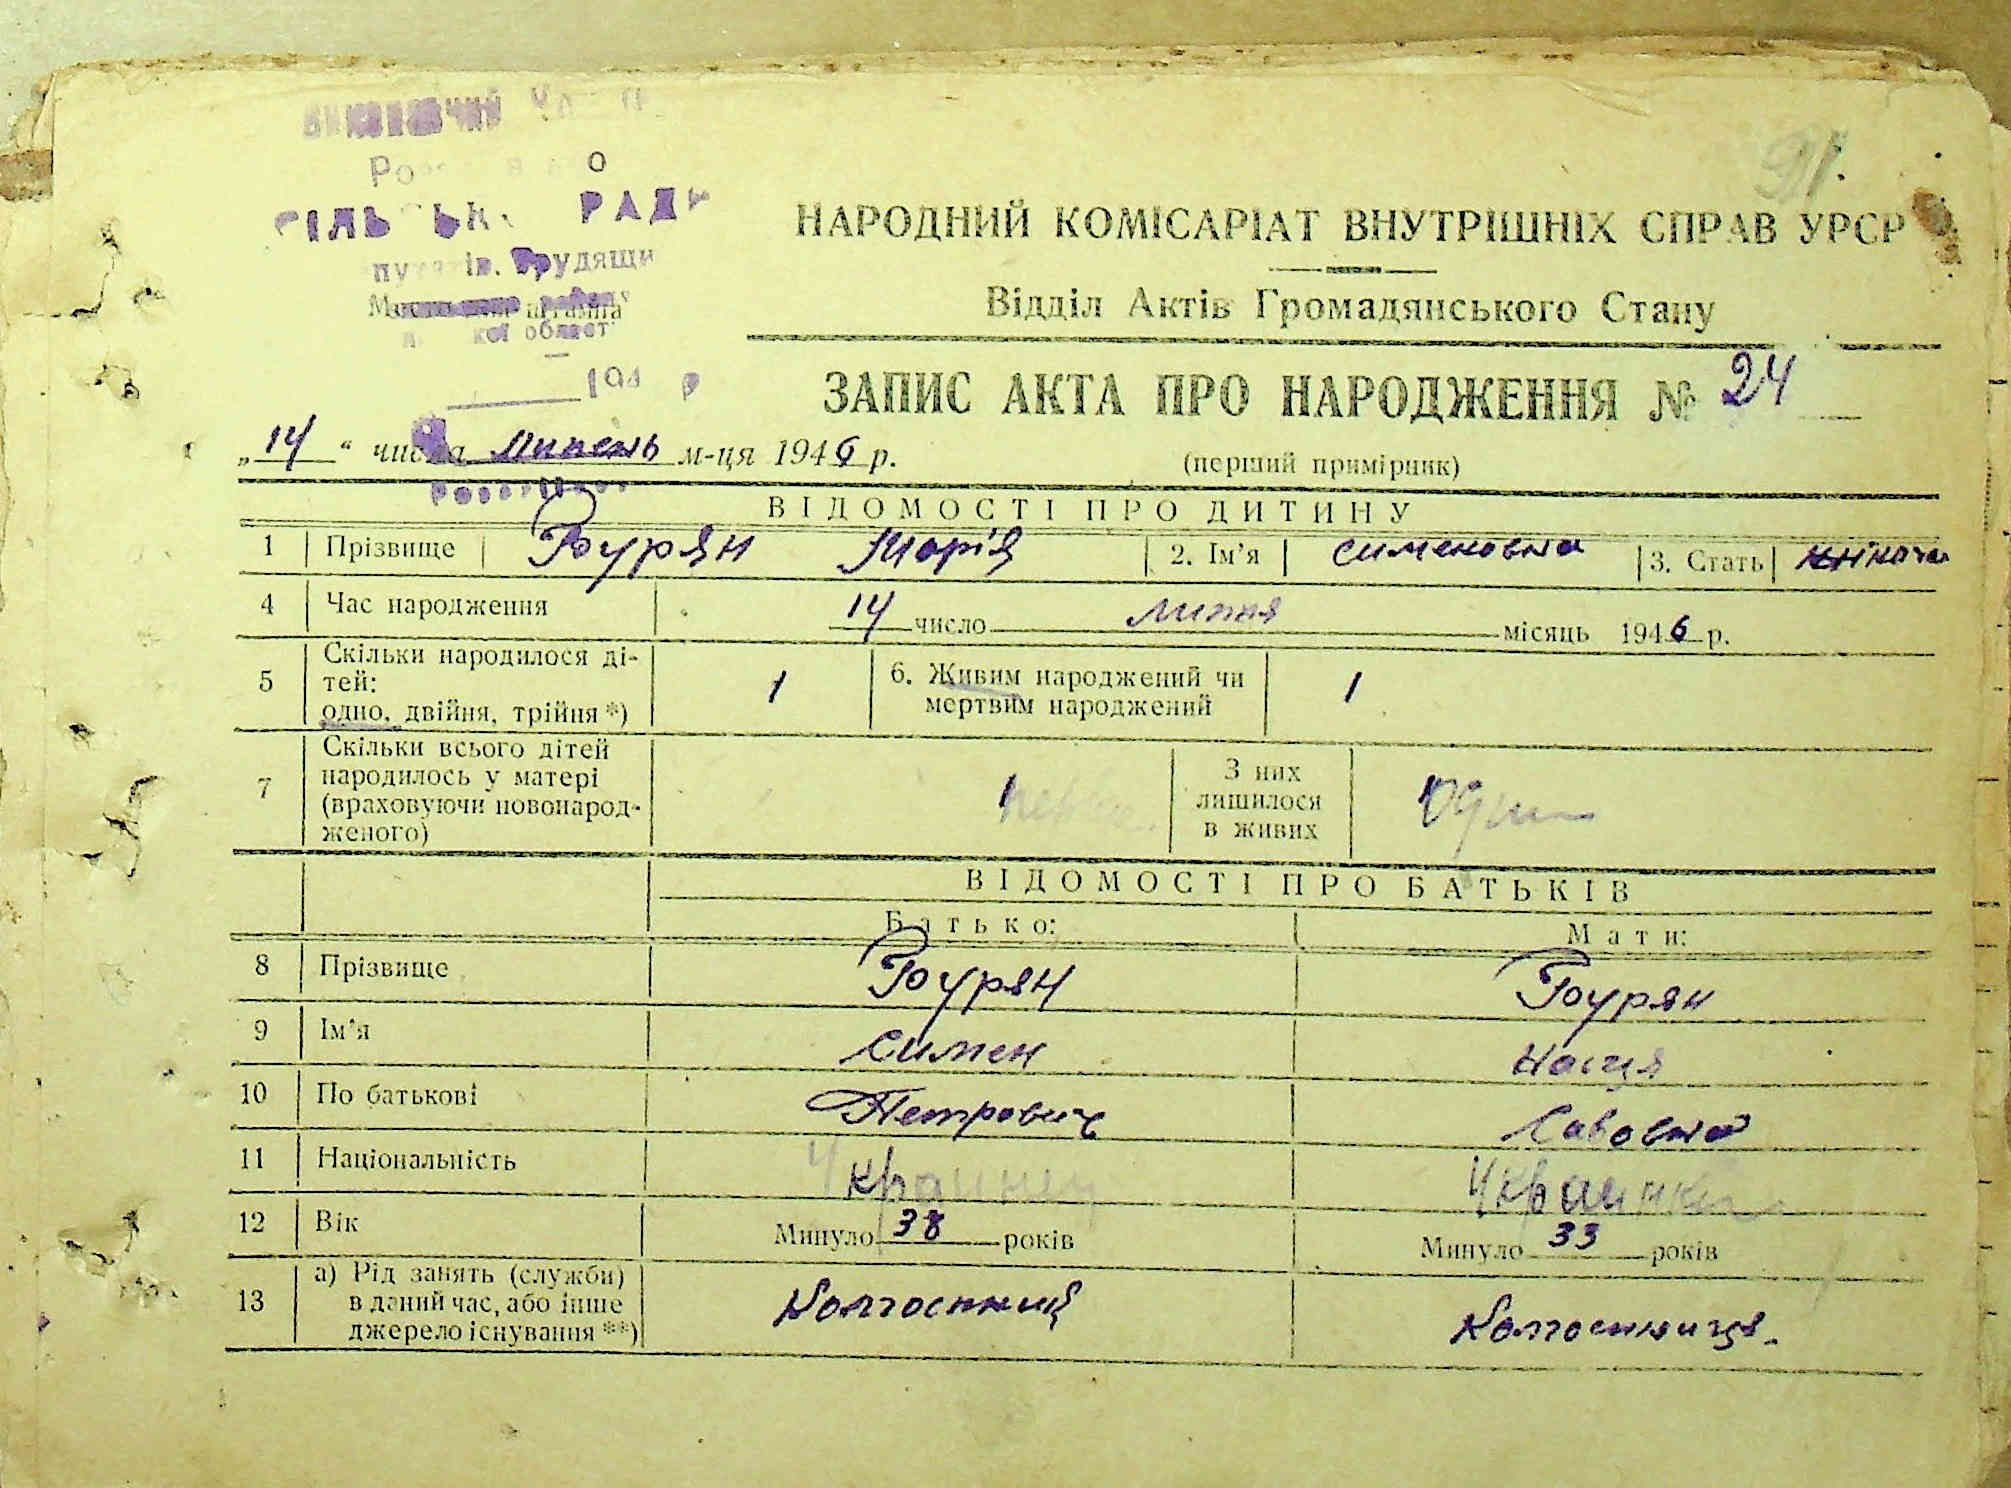 РАДИ
91.
НАРОДНИЙ КОМІСАРІАТ ВНУТРІШНІХ СПРАВ УРСР
Відділ Актів Громадянського Стану
області
194 р
ЗАПИС АКТА ПРО НАРОДЖЕННЯ № 24
„14“ числа липень м-ця 1946 р.
(перший примірник)
ВІДОМОСТІ ПРО ДИТИНУ
1 Прізвище Гоурян Марія 2. Ім'я Сименовна 3. Стать жіноча
4 Час народження 14 число липня місяць 1946 р.
5 Скільки народилося ді-
тей:
одно, двійня, трійня *) 1 6. Живим народжений чи
мертвим народжений 1
7 Скільки всього дітей
народилось у матері
(враховуючи новонарод-
женого) 1
З них
лишилося
в живих один
ВІДОМОСТІ ПРО БАТЬКІВ
Батько: Мати:
8 Прізвище Гоурян Гоурян
9 Ім'я Симен Насця
10 По батькові Петрович Савовна
11 Національність Украинец Украинка
12 Вік Минуло 38 років Минуло 33 років
13 а) Рід занять (служби)
в даний час, або інше
джерело існування **) Колгоспник Колгоспниця.